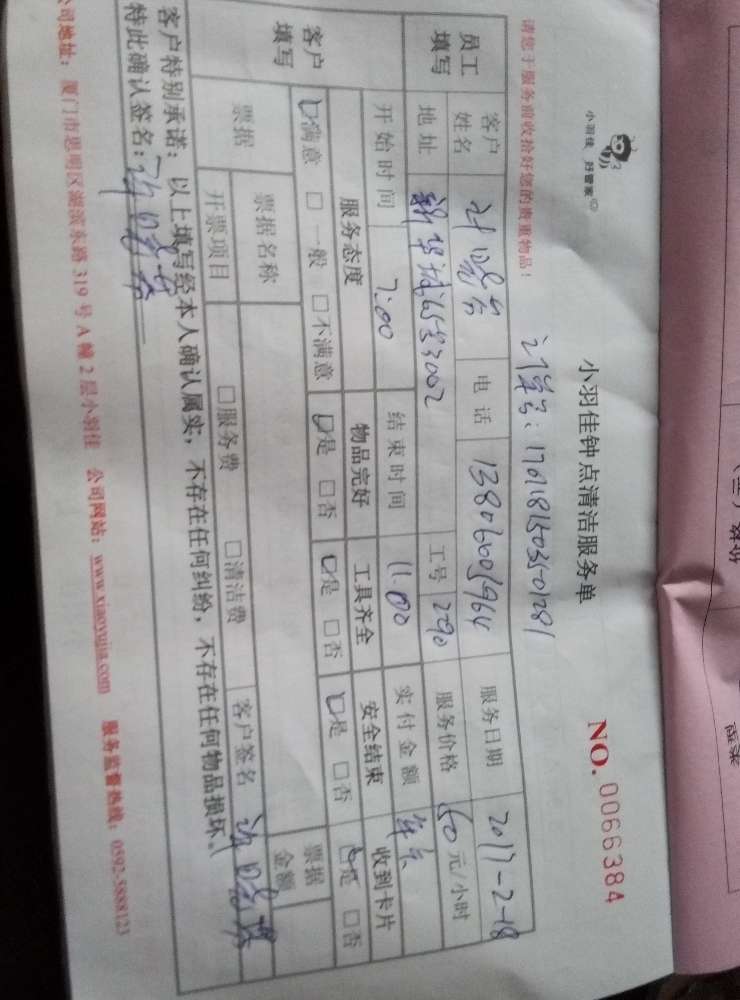 小羽佳 好管家
小羽佳钟点清洁服务单
NO. 0066384
请您于服务前收拾好您的贵重物品！
员工填写
客户姓名
电话 13806005964
服务日期 2017-2-18
地址
工号 290
服务价格 50 元/小时
开始时间 7:00
结束时间 11:00
实付金额
客户填写
服务态度 物品完好 工具齐全 安全结束 收到卡片
□满意 □一般 □不满意 □是 □否 □是 □否 □是 □否 □是 □否
票据
票据名称
票据金额
开票项目 □服务费 □清洁费 客户签名
客户特别承诺：以上填写经本人确认属实，不存在任何纠纷，不存在任何物品损坏。
特此确认签名：
公司地址：厦门市思明区湖滨东路319号A幢2层小羽佳 公司网站：www.xiaoyujia.com 服务监督热线：0592-5888123